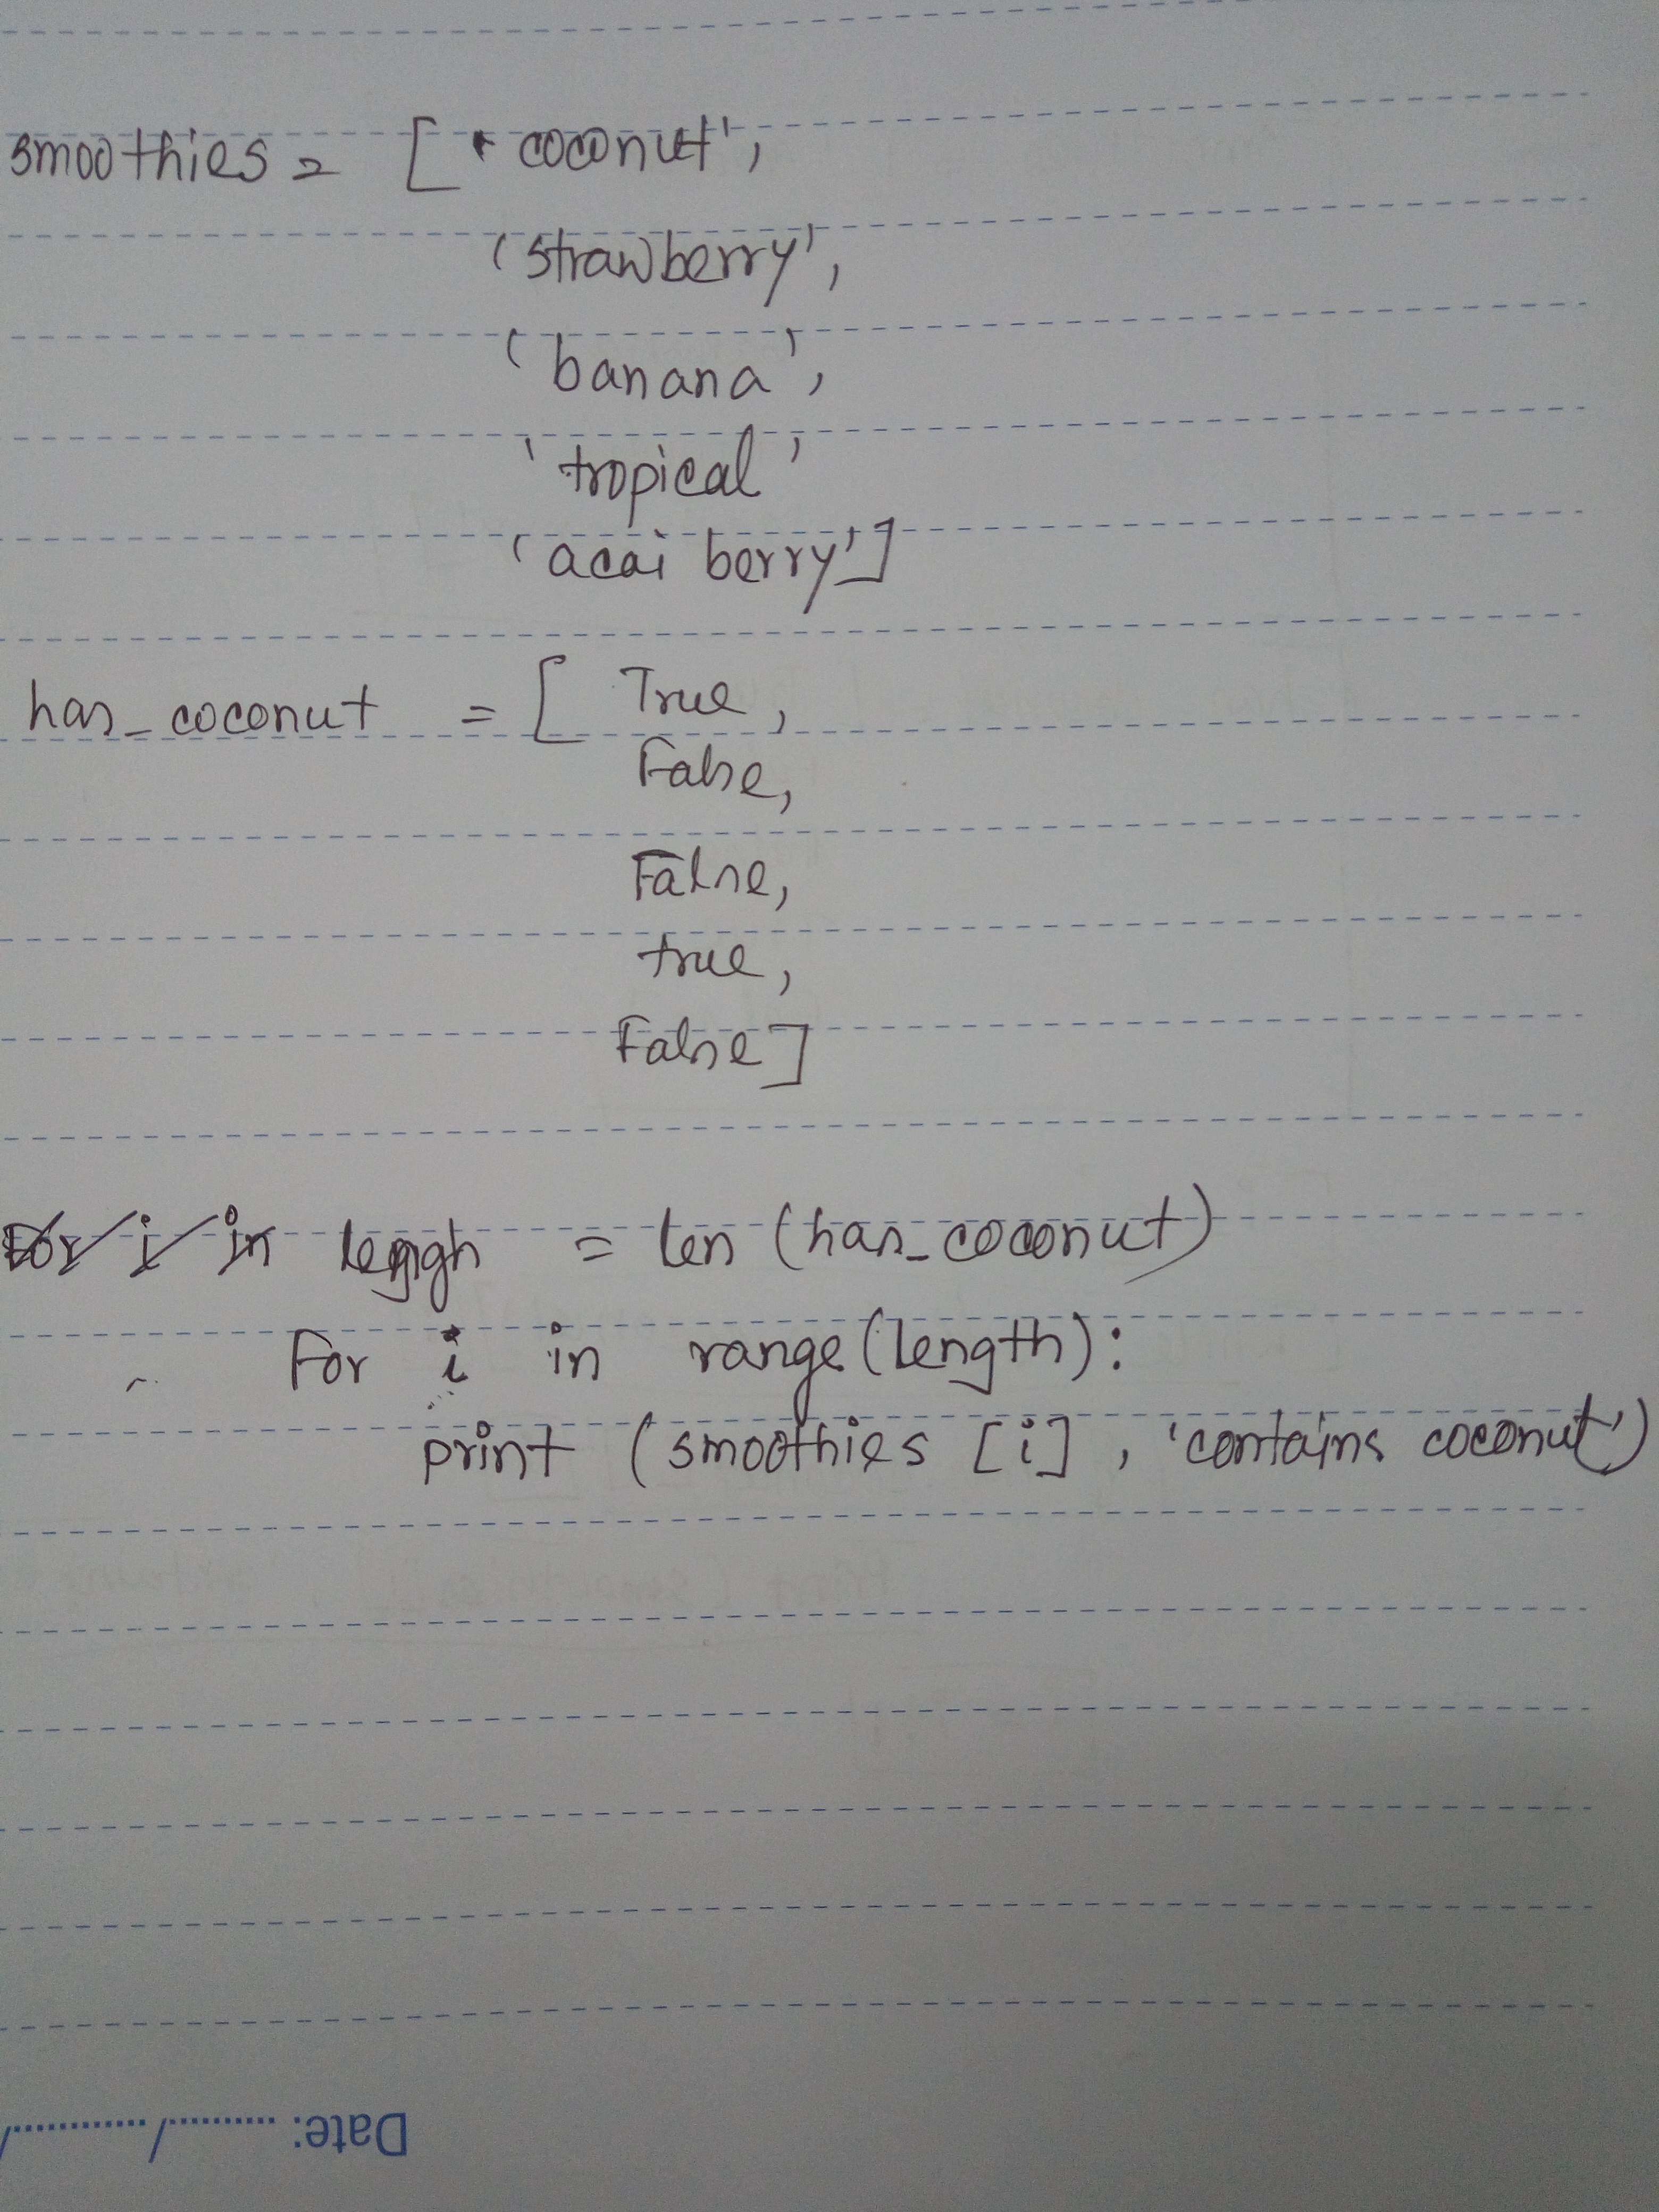 smoothies = ['coconut',
'strawberry',
'banana',
'tropical'
'acai berry']
has_coconut = [True,
False,
False,
true,
False]
For i in = len (has_coconut)
For i in range (length):
print (smoothies [i], 'contains coconut')
Date: ............/............/